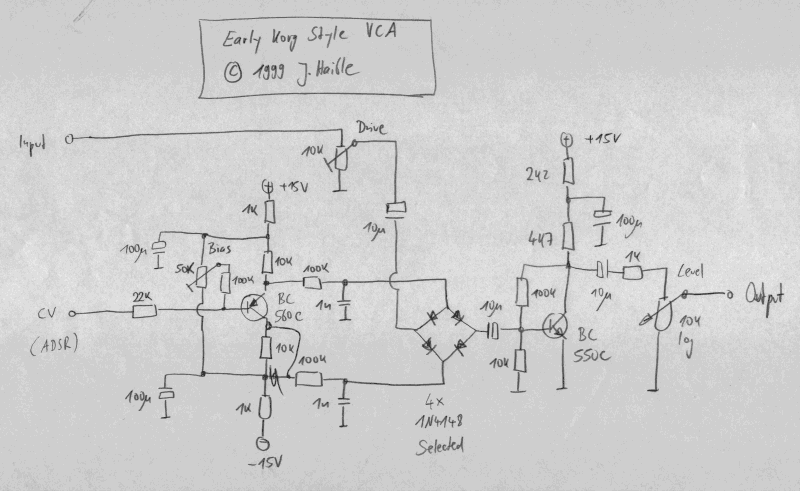 Early Korg Style VCA
© 1999 J. Haible
Input
Drive
10K
+15V
+15V
2k2
1K
100µ
10µ
4k7
100µ
Bias
10K
50K
100K
100K
1K
Level
22K
BC
560C
1n
100K
10µ
10µ
Output
CV
(ADSR)
10K
100K
10K
BC
550C
10k
log
100µ
1K
1n
4x
1N4148
Selected
-15V